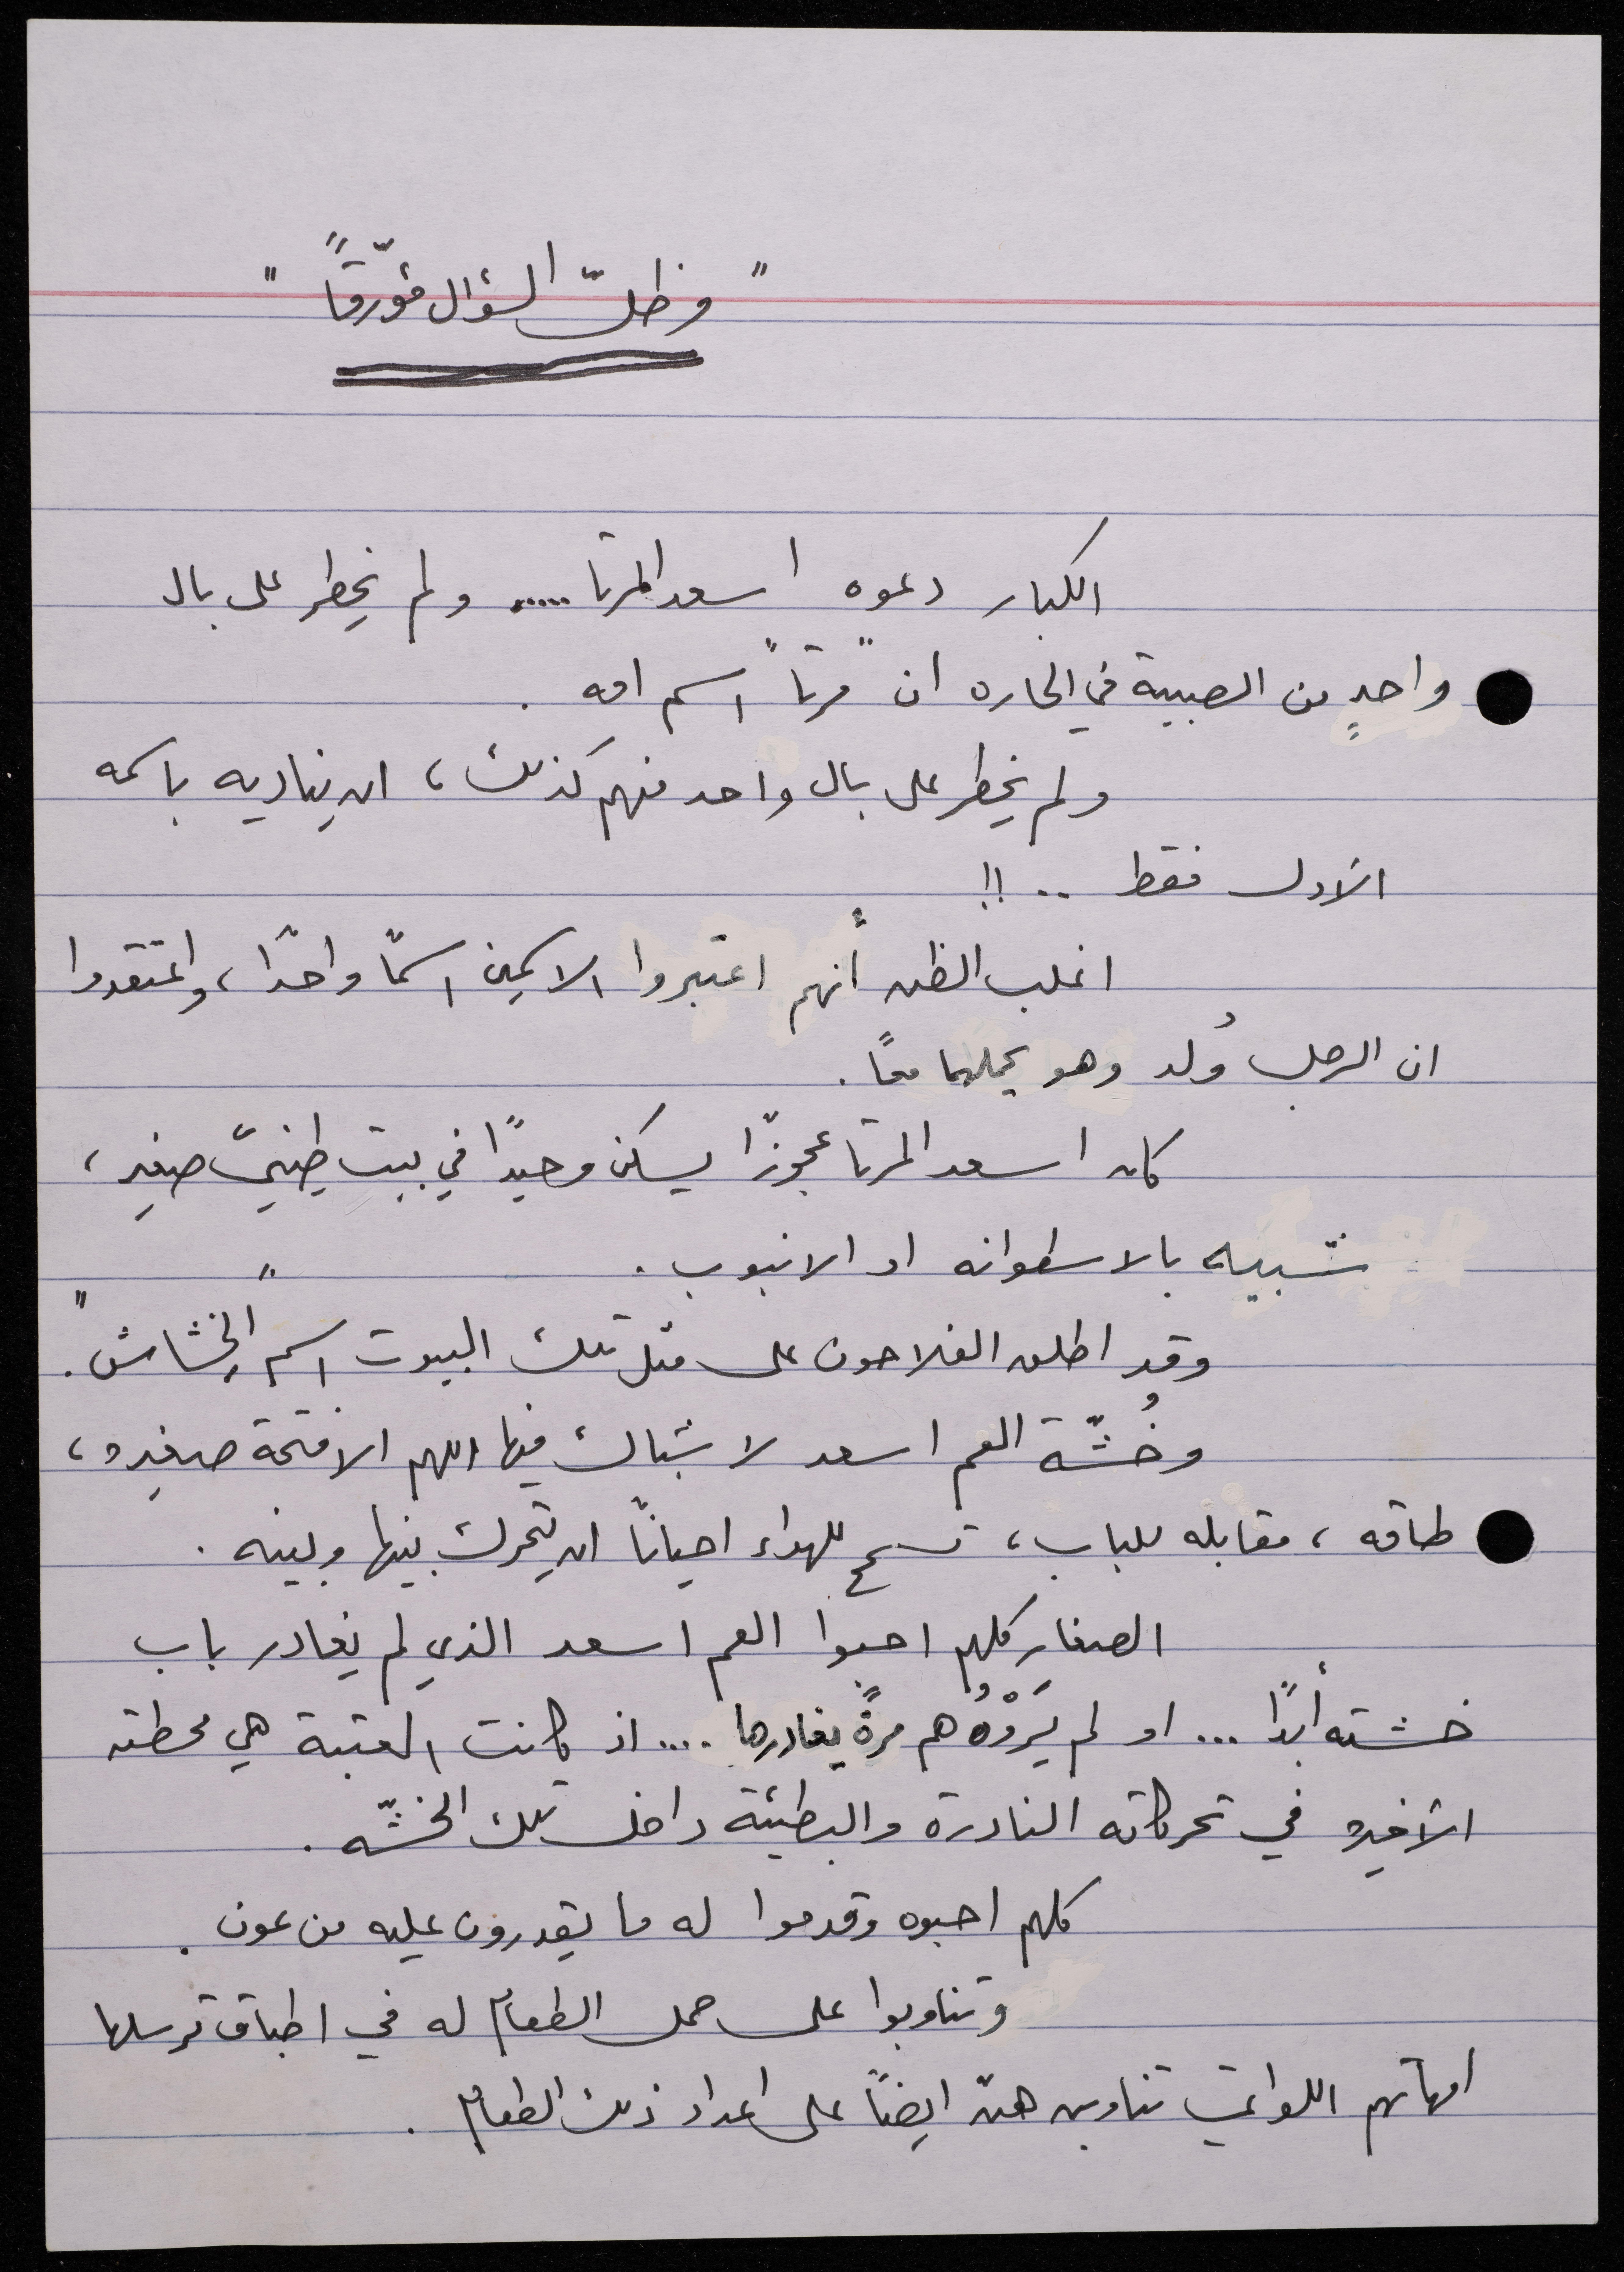 "وظلّ السؤال مؤرّقًا"
الكبار دعوه اسعد المرتا ..... ولم يخطر على بال
واحدٍ من الصبية في الحاره ان "مرتا" اسم امه .
ولم يخطر على بال واحد منهم كذلك ، ان يناديه باسمه
الاول فقط .. !!
اغلب الظن أنهم اعتبروا الاسمين اسمًا واحدًا ، واعتقدوا
ان الرجل وُلد وهو يحملهما معًا .
كان اسعد المرتا عجوزًا يسكن وحيدًا في بيت طينيّ صغير ،
شبيه بالاسطوانه او الانبوب .
وقد اطلق الفلاحون على مثل تلك البيوت اسم "الخشاش" .
وخُشّة العم اسعد لا شباك فيها اللهم الا فتحة صغيره ،
طاقه ، مقابله للباب ، تسمح للهواء احيانًا ان يتحرك بينها وبينه .
الصغار كلهم احبوا العم اسعد الذي لم يغادر باب
خشته أبدًا ... او لم يَرَوْهُ هم مرةً يغادرها .... اذ كانت العتبة هي محطته
الأخيره في تحركاته النادرة والبطيئة داخل تلك الخشّه .
كلهم احبوه وقدموا له ما يقدرون عليه من عون .
وتناوبوا على حمل الطعام له في اطباق ترسلها
امهاتهم اللواتي تناوبن هنّ ايضًا على اعداد ذلك الطعام .